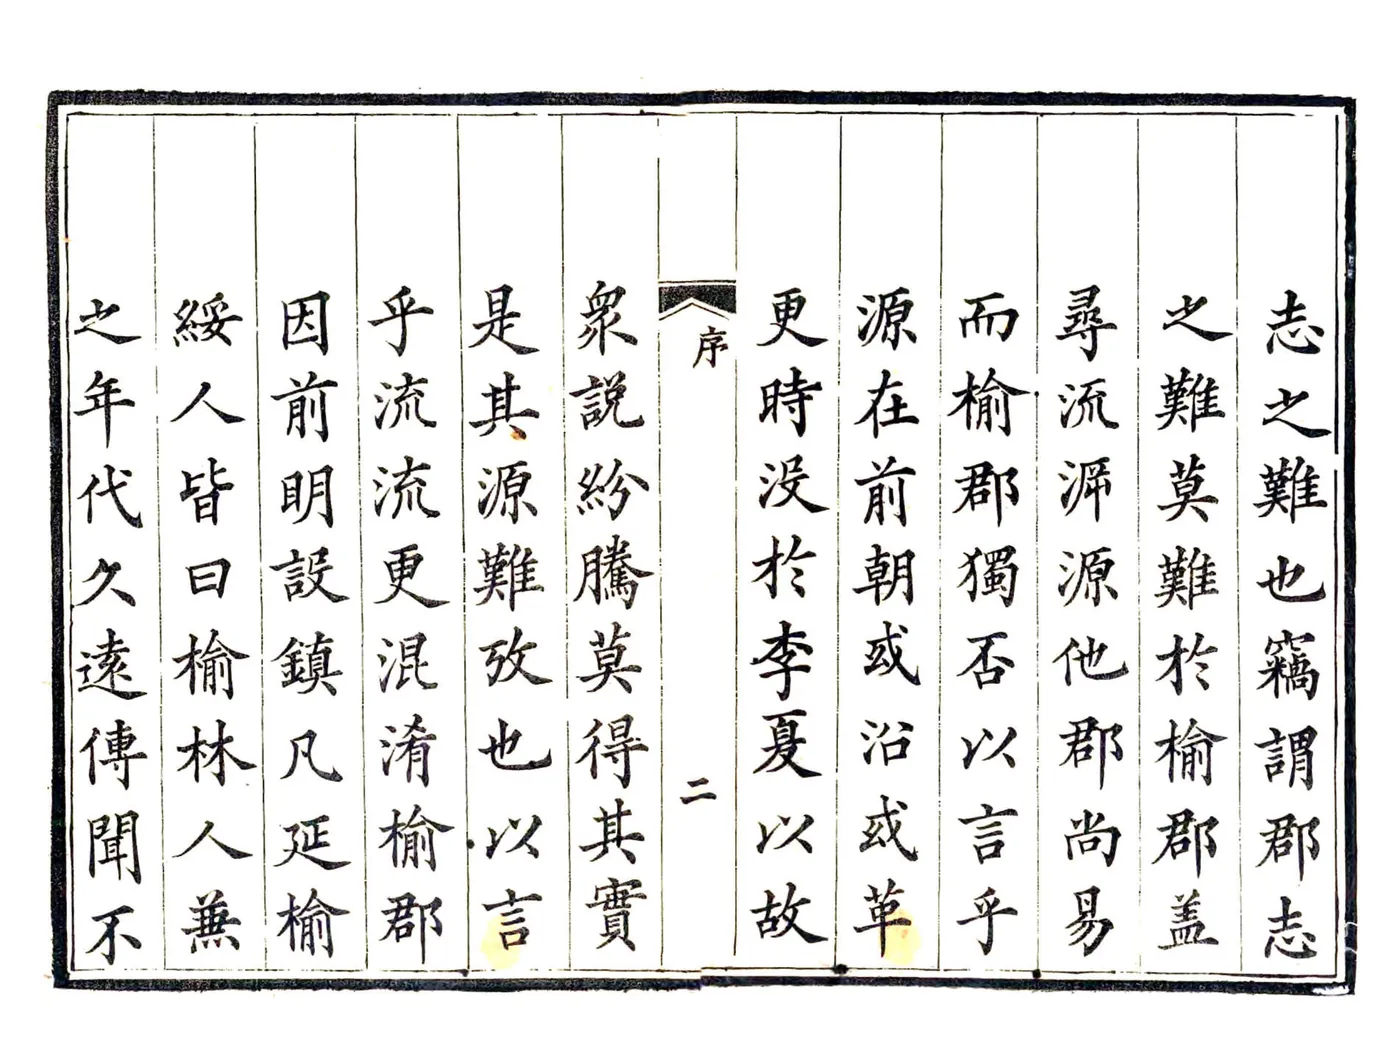 志之難也竊謂郡志
之難莫難於榆郡盖
尋流泝源他郡尚易
而榆郡獨否以言乎
源在前朝或沿或革
更時没於李夏以故
序
二
衆説紛騰莫得其實
是其源難攷也以言
乎流流更混淆榆郡
因前明設鎮凡延榆
綏人皆曰榆林人無
之年代久逺傳聞不